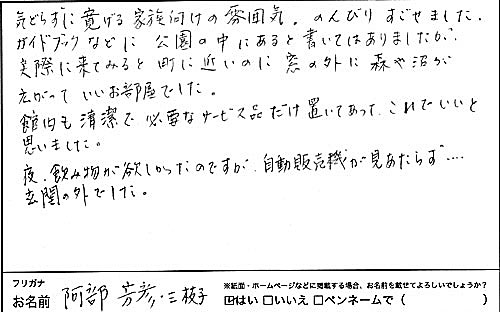 気どらずに寛げる家族向けの雰囲気。のんびりすごせました。
ガイドブックなどに 公園の中にあると書いてはありましたが、
実際に来てみると 町に近いのに 窓の外に 森や沼が
広がって いいお部屋でした。
館内も清潔で 必要なサービス品だけ置いてあって、これでいいと
思いました。
夜、飲み物が欲しかったのですが、自動販売機が見あたらず‥‥
玄関の外でした。
フリガナ
お名前 阿部 芳彦・三枝子
※紙面・ホームページなどに掲載する場合、お名前を載せてよろしいでしょうか?
☑はい □いいえ □ペンネームで ( )